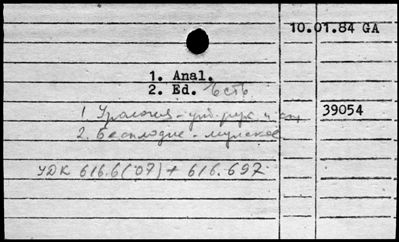 10.01.84 GA
1. Anal.
2. Ed. Есть
1. Урология - рук. и
39054
2. Бесплодие - мужское
УДК 616.6(07) + 616.697